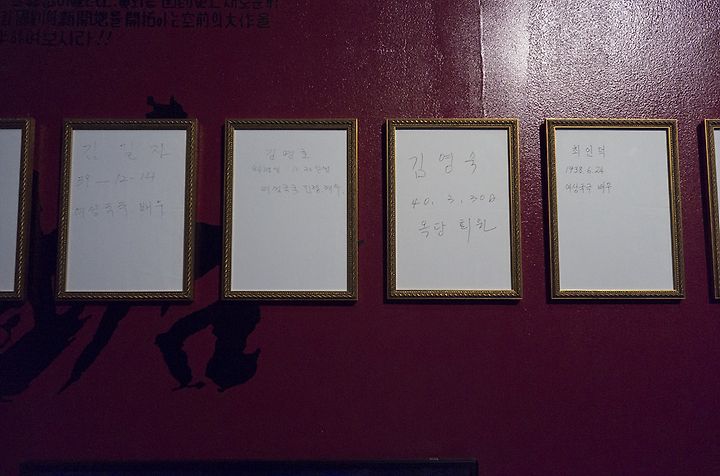 新開地를 開拓하는 空前의 大作을
하여보시라!!
김 일 자
39-12-14
여성국극 배우
김명호
여성국극 배우
김영숙
40. 3. 30
옥당 회원
최인덕
1938. 6. 24
여성국극 배우